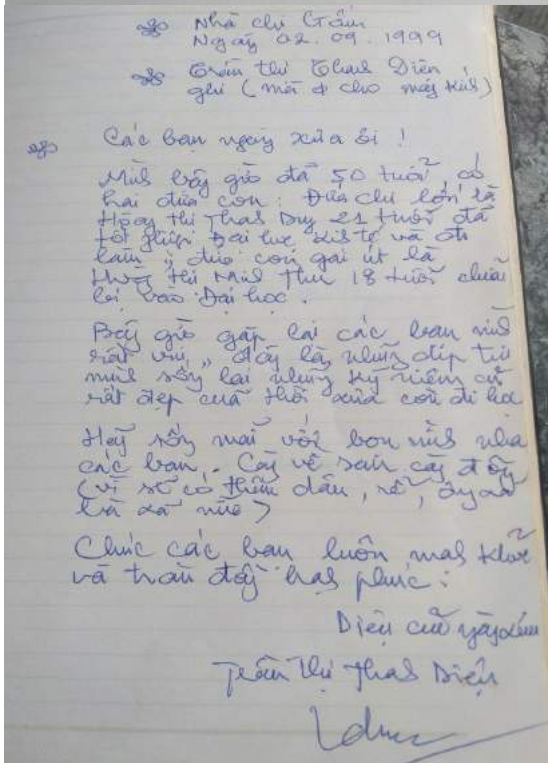 Nhà chị Gấm
Ngày 02.09.1999
Trần Thị Thas Diện
ghi ( cho máy Kis)
Các bạn ngày xưa ơi !
Mils bây giờ đã 50 tuổi, có
hai đứa con: Đứa chị lớn là
Thị Thas Duy 21 tuổi đã
tốt nghiệp Đại học Kis tế và đi
làm, đứa con gái út là
Thị Mils Thư 18 tuổi chuẩn
bị vào Đại học.
Bây giờ gặp lại các bạn mils
rất vui, đây là những dịp tụi
mils sống lại những kỷ niệm cũ
rất đẹp của thời xưa còn đi học
Hãy sống mãi với bọn mils nha
các bạn. Càng về sau càng đông
(vì sẽ có thêm dâu, rể, ông xã
bà xã nữa)
Chúc các bạn luôn mạs khỏe
và tràn đầy hạs phúc.
Diện của ngày xưa
Trần Thị Thas Diện